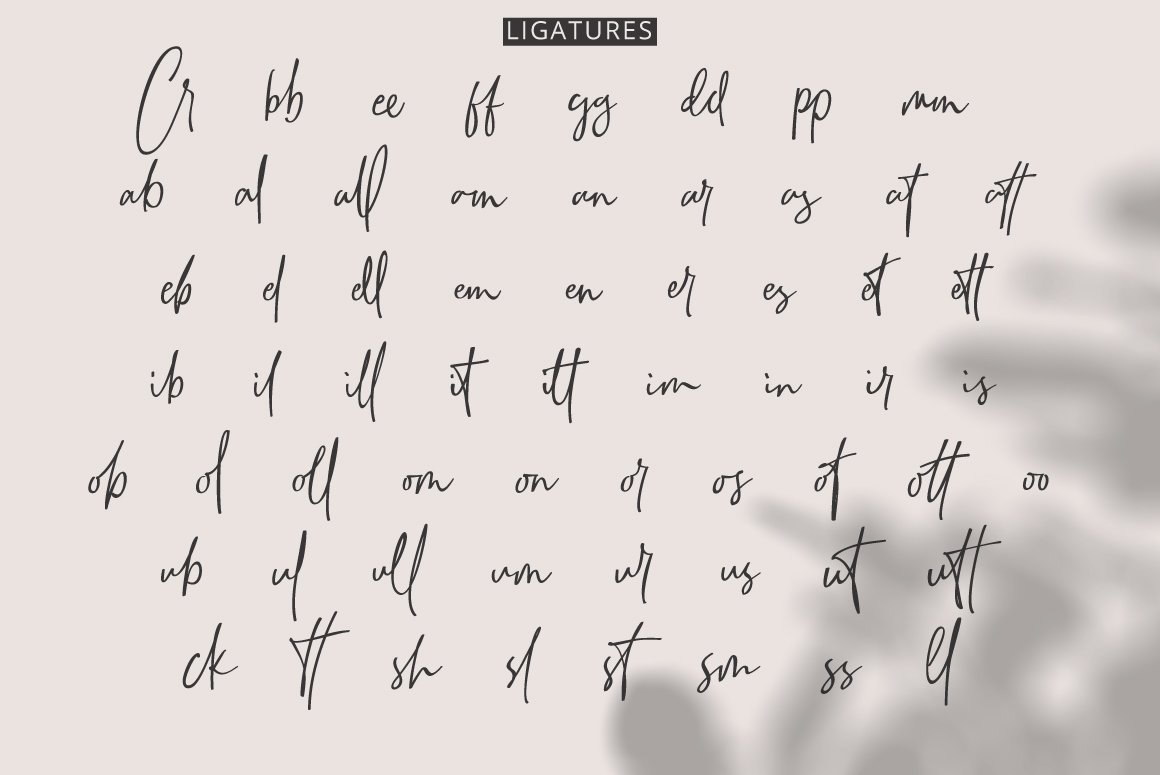 LIGATURES
Cr bb ee ff gg dd pp mm
ab al all am an ar as at att
eb el ell em en er es et ett
ib il ill it itt im in ir is
ob ol oll om on or os ot ott oo
ub ul ull um ur us ut utt
ck tt sh sl st sm ss ll